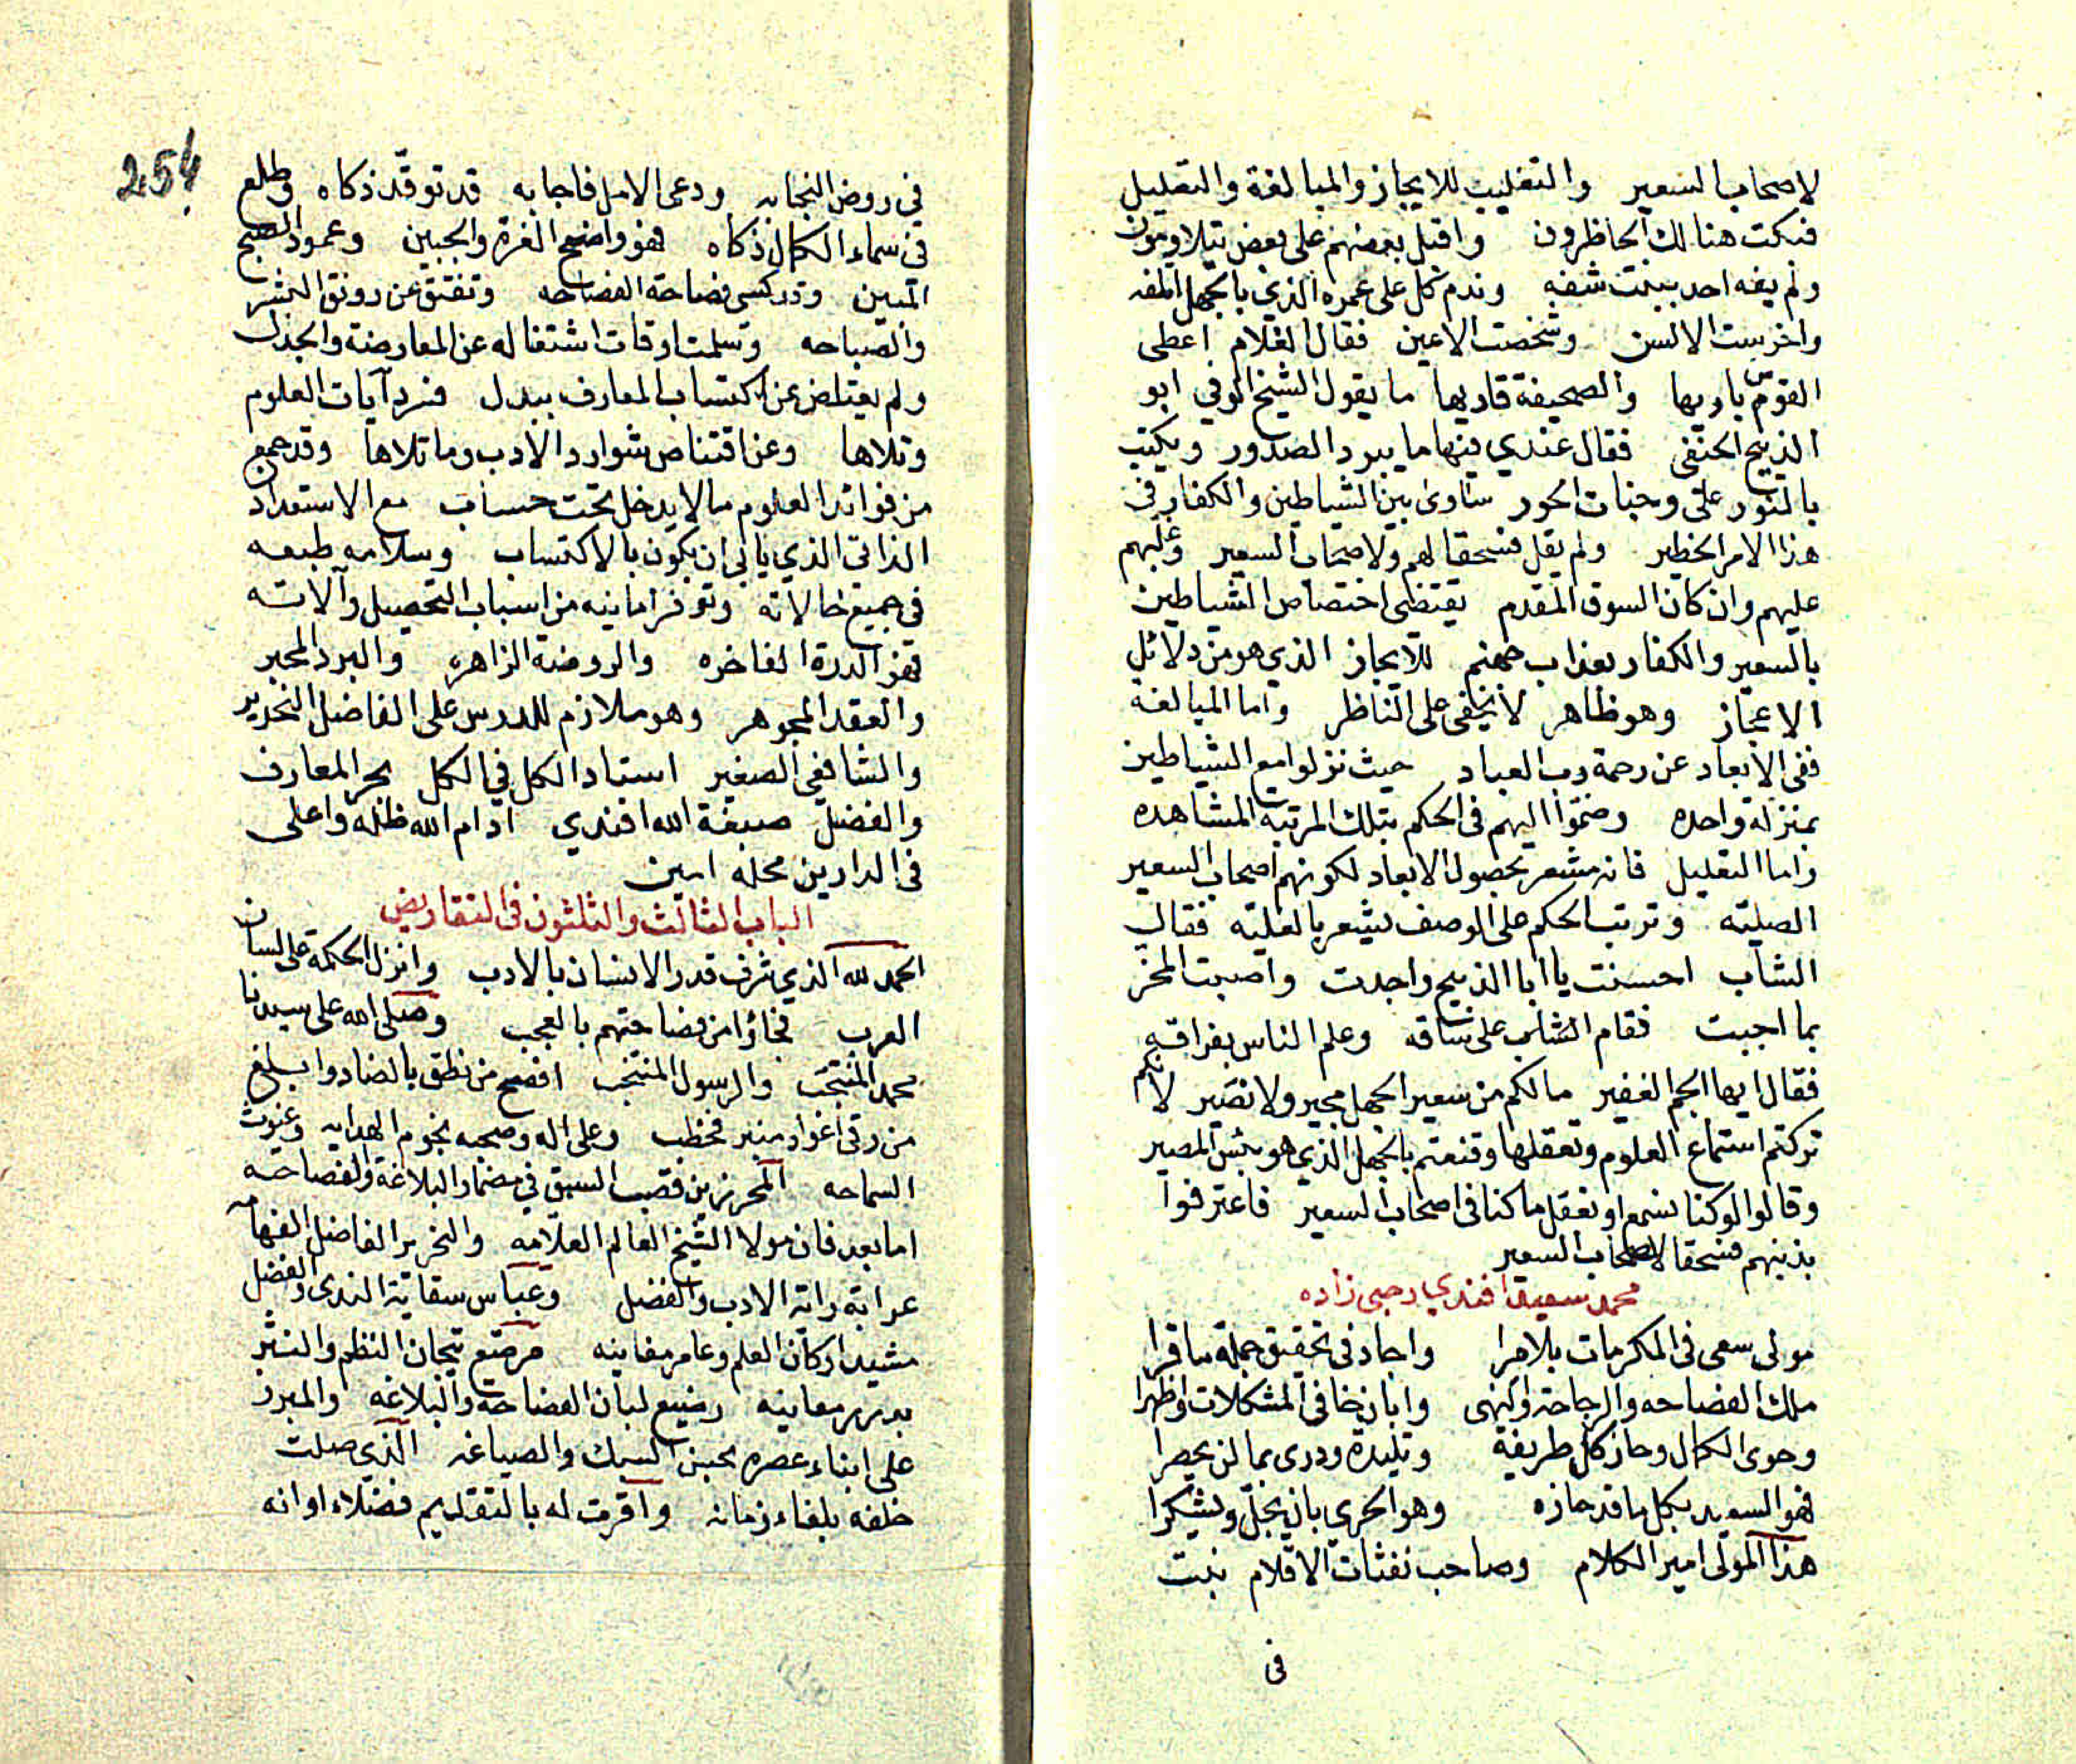 لاصحاب السعير والتغليب للايجاز والمبالغة والتعليل
فسكت هنالك الحاظرون واقبل بعضهم على بعض يتلاومون
ولم يفه احد ببنت شفه وندم كل على عمره الذي بالجهل اتلفه
واخرست الالسن وشخصت الاعين فقال الغلام اعطى
القوس باريها والصحيفة قاريها ما يقول الشيخ الوفي ابو
الذبيح الحنفي فقال عندي فيها ما يبرد الصدور ويكتب
بالنور على وجنات الحور ساوى بين الشياطين والكفار في
هذا الامر الخطير ولم يقل فسحقا لهم ولاصحاب السعير وغلبهم
عليهم وان كان السوق المقدم يقتضى اختصاص الشياطين
بالسعير والكفار بعذاب جهنم للايجاز الذي هو من دلائل
الاعجاز وهو ظاهر لا يخفى على الناظر واما المبالغة
ففى الابعاد عن رحمة رب العباد حيث نزلوا مع الشياطين
بمنزلة واحده وضموا اليهم فى الحكم بتلك المرتبة المشاهده
واما التعليل فانه مشعر بحصول الابعاد لكونهم اصحاب السعير
الصليه وترتب الحكم على الوصف يشعر بالعليه فقال
الشاب احسنت يا ابا الذبيح واجدت واصبت المحز
بما اجبت فقام الشاب على ساقه وعلم الناس بفراقه
فقال ايها الجم الغفير مالكم من سعير الجهل مجير ولا نصير لانكم
تركتم استماع العلوم وتعقلها وقنعتم بالجهل الذي هو بئس المصير
وقالوا لو كنا نسمع او نعقل ما كنا فى اصحاب السعير فاعترفوا
بذنبهم فسحقا لاصحاب السعير
محمد سعيد افندي رحبى زاده
مولى سعى فى المكرمات بلا مرا واجاد فى تحقيق جملة ما قرا
ملك الفصاحه والرجاحة والنهى وابان خافى المشكلات واظهرا
وحوى الكمال وحاز كل طريفة وتليدة ودرى بما لن يحصرا
فهو السعيد بكل ما قد حازه وهو الحرى بان يجل ويشكرا
هذا المولى امير الكلام وصاحب نفثات الاقلام نبت
فى
254
في روض النجابه ودعى الامل فاجابه قد توقد ذكاه وطلع
فى سماء الكمال ذكاه فهو واضح الغرة والجبين وعمود الصبح
المبين وقد كسى فصاحة الفصاحه وتفتق عن رونق البشر
والصباحه وتسلمت اوقات اشتغاله عن المعارضة والجدل
ولم يعتاض عن اكتساب المعارف ببدل فسرد آيات العلوم
وتلاها وعن اقتناص شوارد الادب وما تلاها وقد جمع
من فوائد العلوم مالا يدخل تحت حساب مع الاستعداد
الذاتى الذي يابى ان يكون بالاكتساب وسلامه طبعه
فى جميع حالاته وتوفر امانيه من اسباب التحصيل وآلاته
فهو الدرة الفاخره والروضة الزاهره والبرد المحبر
والعقد المجوهر وهو ملازم للدرس على الفاضل النحرير
والشافعي الصغير استاد الكل في الكل بحر المعارف
والفضل صبغة الله افندي ادام الله ظله واعلى
فى الدارين محله امين
الباب الثالث والثلثون فى التقاريض
الحمد لله الذي شرف قدر الانسان بالادب وانزل الحكمة على لسان
العرب فجاؤا من فصاحتهم بالعجب وصلى الله على سيدنا
محمد المنتجب والرسول المنتخب افصح من نطق بالضاد وابلغ
من رقى اعواد منبر فخطب وعلى اله وصحبه نجوم الهدايه وغيوث
السماحه المحرزين قصب السبق في مضمار البلاغة والفصاحه
اما بعد فان مولا الشيخ العالم العلامه والنحرير الفاضل الفهامه
عرابة راية الادب والفضل وعباس سقاية الندى والفضل
مشيد اركان العلم وعامر مغانيه مرصع تيجان النظم والنثر
بدرر معانيه رضيع لبان الفصاحة والبلاغه والمبرز
على ابناء عصره بحسن السبك والصياغه الذي صلت
خلفه بلغاء زمانه واقرت له بالتقديم فضلاء اوانه